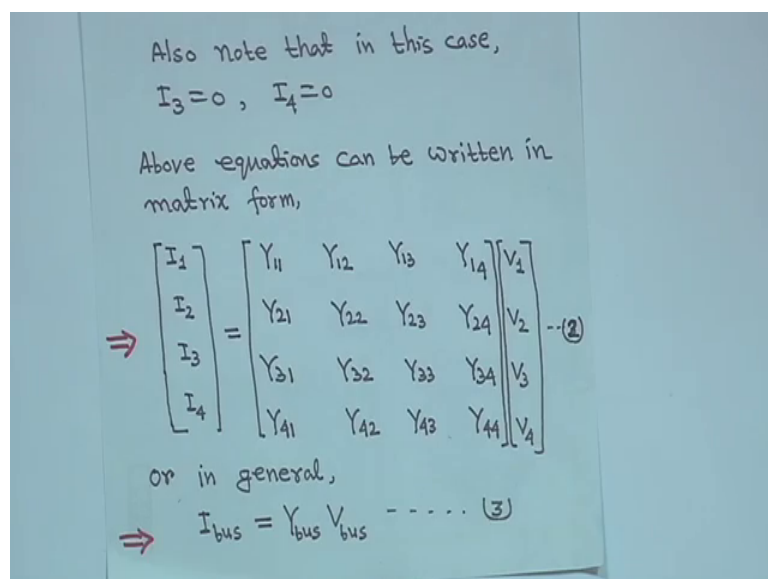 Also note that in this case,
I3=0, I4=0
Above equations can be written in
matrix form,
⇒ [I1 I2 I3 I4] = [Y11 Y12 Y13 Y14 [V1
Y21 Y22 Y23 Y24 V2 --(2)
Y31 Y32 Y33 Y34 V3
Y41 Y42 Y43 Y44] V4]
or in general,
⇒ Ibus = Ybus Vbus ----- (3)